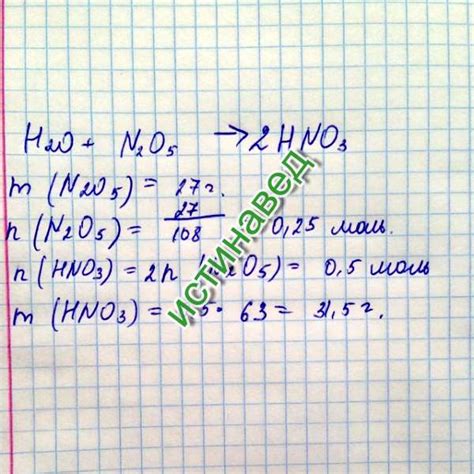 H2O + N2O5 → 2HNO3
m (N2O5) = 27г.
n (N2O5) = 27/108 0,25 моль.
n (HNO3) = 2n (N2O5) = 0,5 моль
m (HNO3) = 5 · 63 = 31,5г.
истинавед